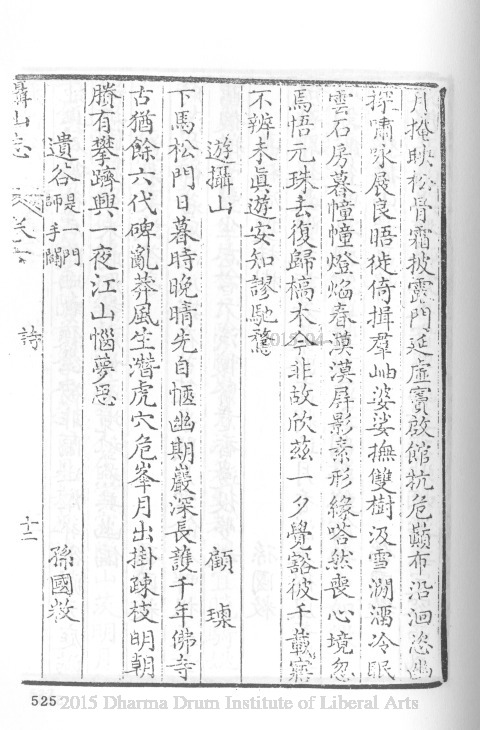 月掩映松骨霜披靈門延虛竇啟館抗危巔布沿洄恣幽
探嘯咏展良晤徙倚揖羣岫婆娑撫雙樹汲雪澗濡冷眠
雲石房暮幢幢燈焰春漠漠屏影素形緣嗒然喪心境忽
焉悟元珠去復歸槁木今非故欣茲一夕覺豁彼千載寤
不辨未眞遊安知謬馳騖
遊攝山 顧璘
下馬松門日暮時晚晴先自愜幽期巖深長護千年佛寺
古猶餘六代碑亂莽風生潛虎穴危峯月出掛疎枝明朝
賸有攀躋興一夜江山惱夢思
遺谷是一門師手闢 孫國敉
攝山志 卷六 詩 十二
525
2015 Dharma Drum Institute of Liberal Arts